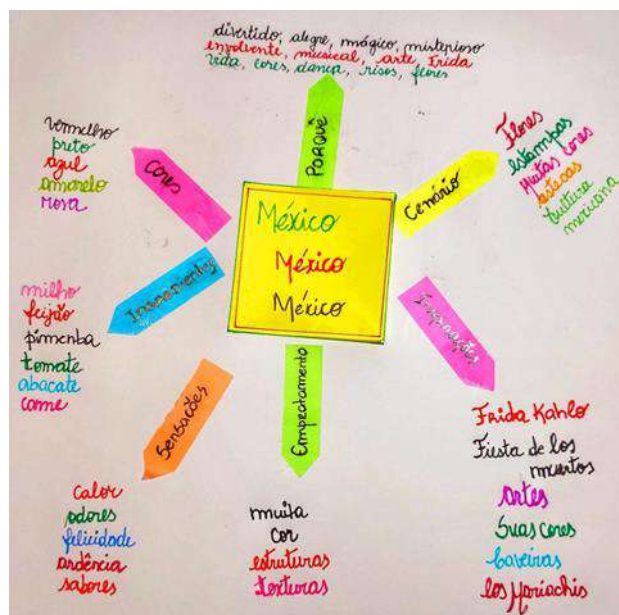 divertido, alegre, mágico, misterioso
envolvente, musical, arte, Frida
vida, cores, dança, risos, flores
PORQUÊ
Cores
vermelho
preto
azul
amarelo
rosa
Cenário
Flores
estampas
Muitas cores
astecas
Cultura
mexicana
México
México
México
Ingredientes
milho
feijão
pimenta
tomate
abacate
carne
Inspirações
Frida Kahlo
Fiesta de los
muertos
Artes
Suas cores
Caveiras
los Mariachis
Sensações
calor
odores
felicidade
ardência
sabores
Empratamento
muita
cor
estruturas
texturas